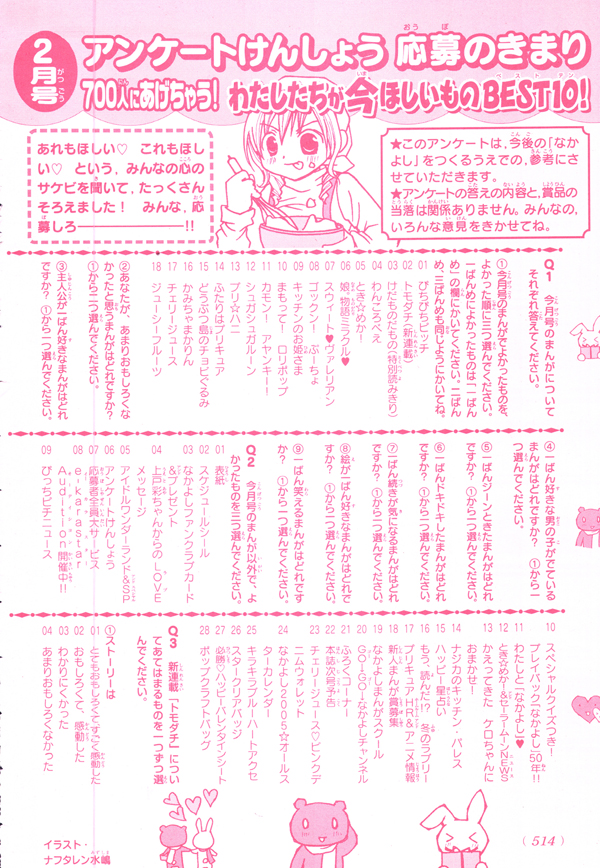 2月号
アンケートけんしょう 応募のきまり
700人にあげちゃう! わたしたちが今ほしいものBEST10!
あれもほしい♡ これもほし
い♡ という、みんなの心の
サケビを聞いて、たっくさん
そろえました! みんな、応
募しろ————————!!
★このアンケートは、今後の「なか
よし」をつくるうえでの、参考にさ
せていただきます。
★アンケートの答えの内容と、賞品の
当落は関係ありません。みんなの、
いろんな意見をきかせてね。
Q1 今月号のまんがについて
それぞれ答えてください。
①今月号のまんがでよかったものを、
よかった順に三つ選んでください。
一ばんめによかったものは「一ばん
め」の欄にかいてください。二ばん
め、三ばんめも同じようにかいてね。
01 ぴちぴちピッチ
02 トモダチ(新連載)
03 けだものだもの(特別読みきり)
04 わんころべえ
05 とき☆めか!
06 娘。物語ミラクル♥
07 スウィート♥ヴァレリアン
08 ゴックン!ぷーちょ
09 キッチンのお姫さま
10 まもって!ロリポップ
11 カモン!アヤンキー!
12 シュガシュガルーン
13 プリ☆ハニ
14 ふたりはプリキュア
15 どうぶつ島のチョビぐるみ
16 かみちゃまかりん
17 チェリージュース
18 ジューシーフルーツ
②あなたが、あまりおもしろくな
かったと思うまんがはどれですか?
①から一つ選んでください。
③主人公が一ばん好きなまんがはどれ
ですか? ①から一つ選んでください。
④一ばん好きな男の子がでている
まんがはどれですか? ①から一
つ選んでください。
⑤一ばんジーンときたまんがはどれ
ですか? ①から一つ選んでください。
⑥一ばんドキドキしたまんがはどれ
ですか? ①から一つ選んでください。
⑦一ばん続きが気になるまんがはどれ
ですか? ①から一つ選んでください。
⑧絵が一ばん好きなまんがはどれで
すか? ①から一つ選んでください。
⑨一ばん笑えるまんがはどれです
か? ①から一つ選んでください。
Q2 今月号のまんが以外で、よ
かったものを三つ選んでください。
01 表紙
02 スケジュールシール
03 なかよしファンクラブカード
&プレゼント
04 上戸彩ちゃんからのLOVE
メッセージ
05 アイドルワンダーランド&SP
06 アンケートけんしょう
07 応募者全員大サービス
08 e-karastar
Audition開催中!!
09 ぴっちピチニュース
10 スペシャルクイズつき!
プレイバック「なかよし」50年!!
11 わたしと「なかよし」♥
12 とき☆めか!&セーラームーンNEWS
13 かえってきた ケロちゃんに
おまかせ!
14 ナジカのキッチン・パレス
15 ハッピー星占い
16 もう、読んだ!? 冬のラブリー
17 プリキュアHR&アニメ情報
18 新人まんが賞募集
19 なかよしまんがスクール
20 GO!GO!なかよしチャンネル
21 ふろくコーナー
22 本誌次号予告
23 チェリージュース♡ピンクデ
ニムウォレット
24 なかよし2005☆オールス
ターカレンダー
25 キラキラブルーハートアクセ
26 スタークリアバッジ
27 必勝♡ハッピーバレンタインシート
28 ポップクラフトバッグ
Q3 新連載「トモダチ」につい
てあてはまるものを一つずつ選
んでください。
①ストーリーは
01 とてもおもしろくてすごく感動した
02 おもしろくて、感動した
03 わかりにくかった
04 あまりおもしろくなかった
イラスト・
ナフタレン水嶋
(514)